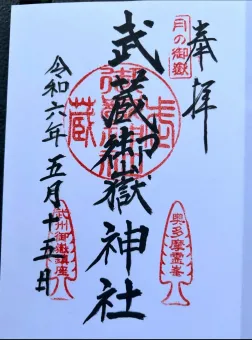 奉拝
月の御嶽
武蔵御嶽神社
奥多摩霊峯
令和六年五月十五日